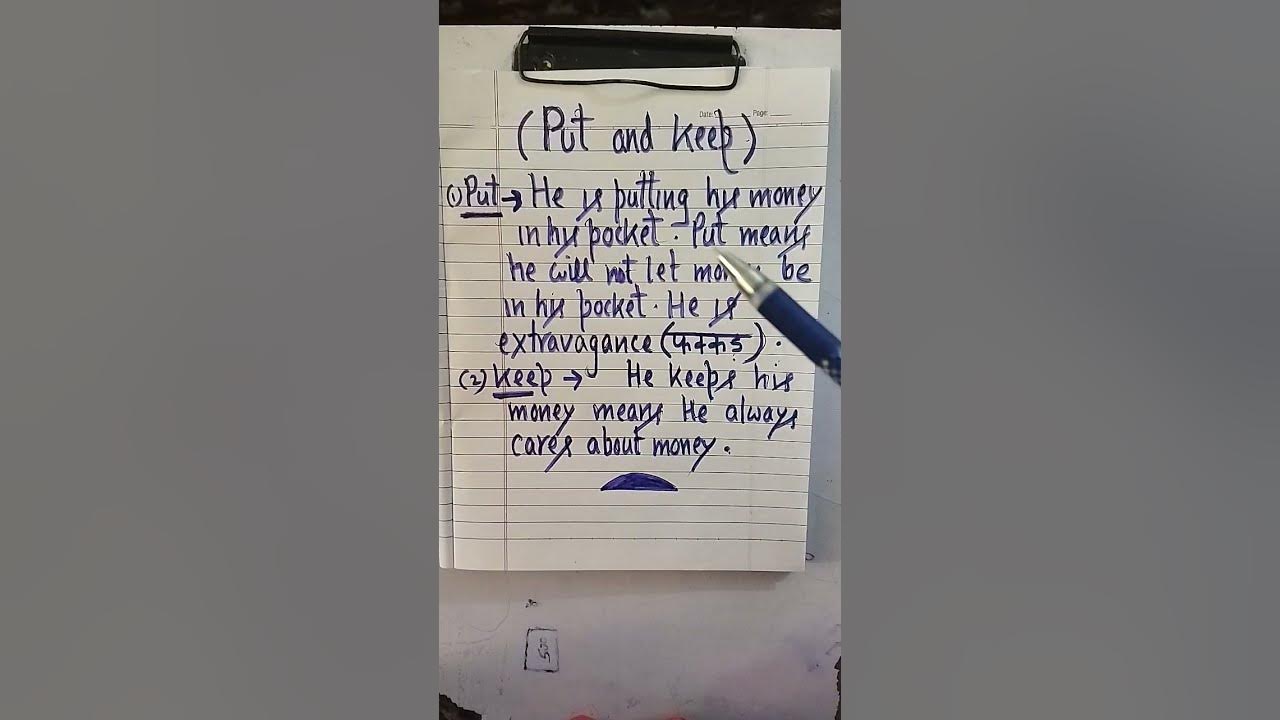 Date: Page:
(Put and Keep)
(1) Put → He is putting his money
in his pocket. Put means
he will not let money be
in his pocket. He is
extravagance (फक्कड़).
(2) Keep → He keeps his
money means He always
cares about money.
500